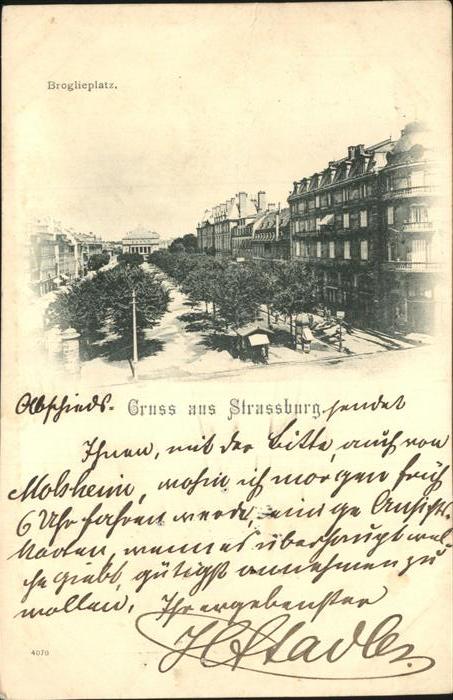 Broglieplatz.
Abschieds- Gruss aus Strassburg sendet
Ihnen, mit der Bitte, auch von
Molsheim, wohin ich morgen früh
6 Uhr fahren werde, einige Ansichts-
karten, wenn es überhaupt wel-
che giebt, gütigst annehmen zu
wollen. Ihr ergebenster
Stadler
4070